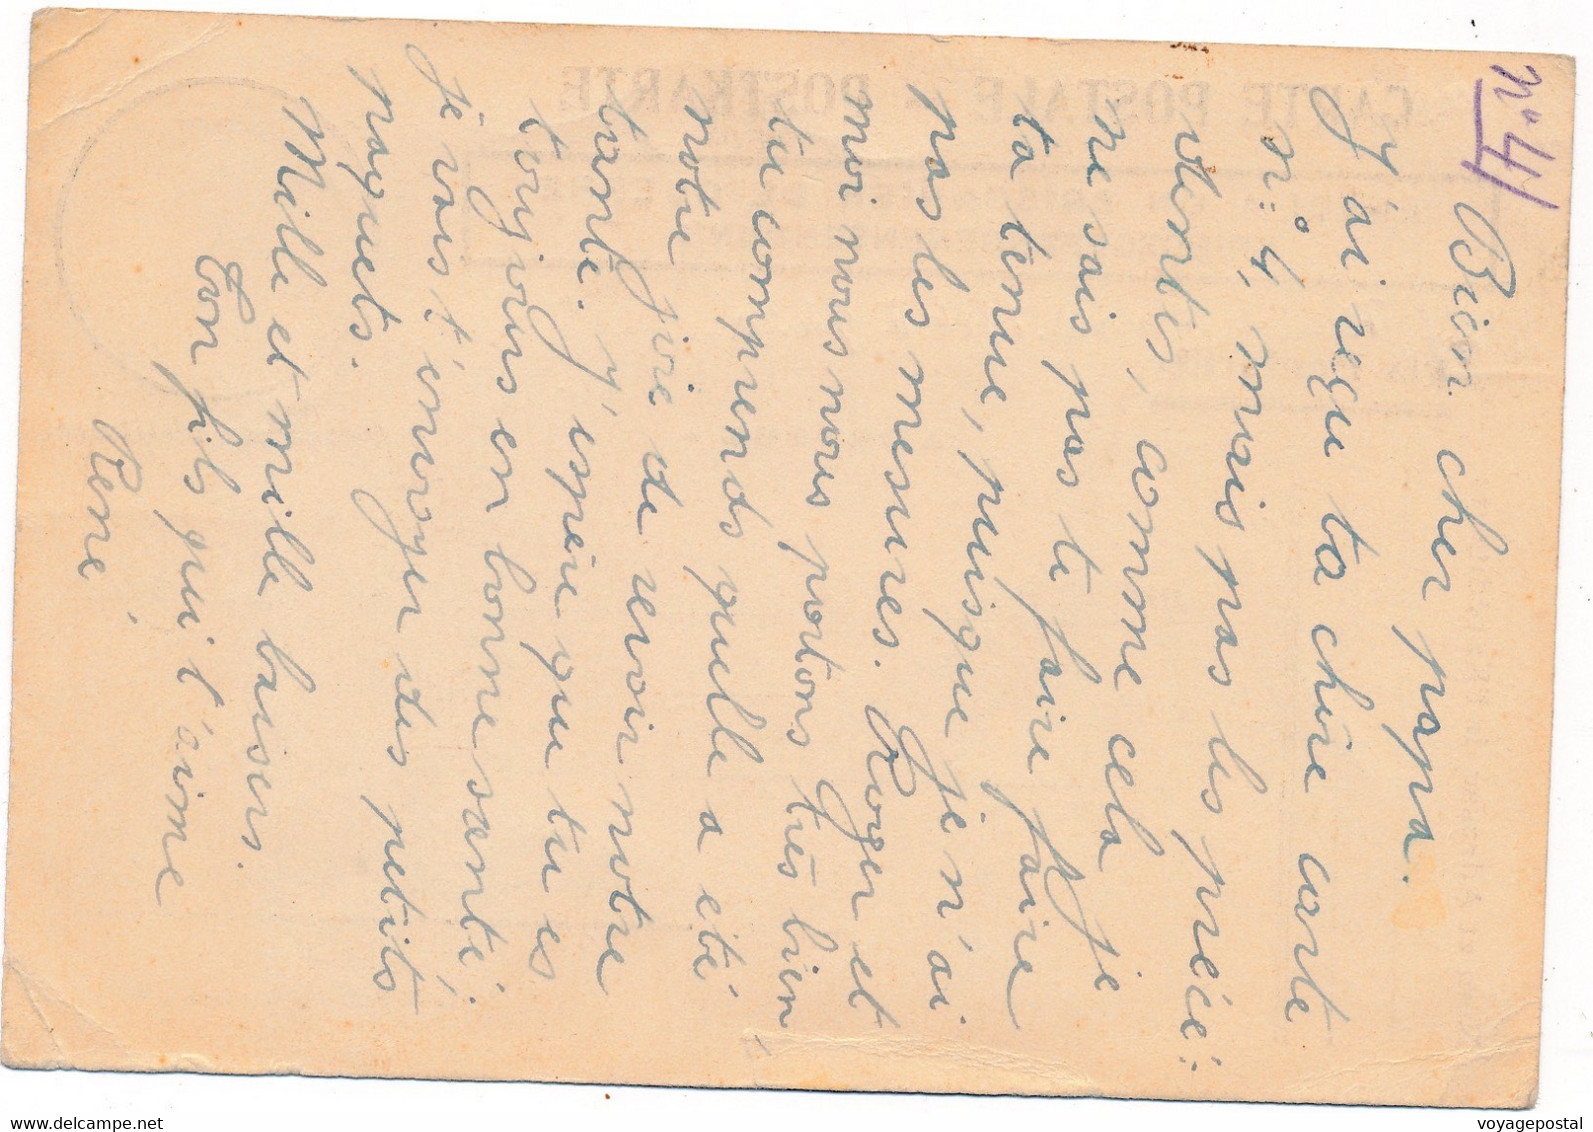 n° 4
Bien cher papa.
J'ai reçu ta chère carte
n:° 4, mais pas les précé:
dentes, comme cela je
ne sais pas te faire faire
ta tenue, puisque je n'ai
pas les mesures. Roger et
moi nous nous portons très bien
tu comprends quelle a été
notre joie de revoir notre
tante. J'espère que tu es
toujours en bonne santé;
je vais t'envoyer des petits
paquets.
Mille et mille baisers.
Ton fils qui t'aime
René
CARTE POSTALE POSTKARTE
voyagepostal